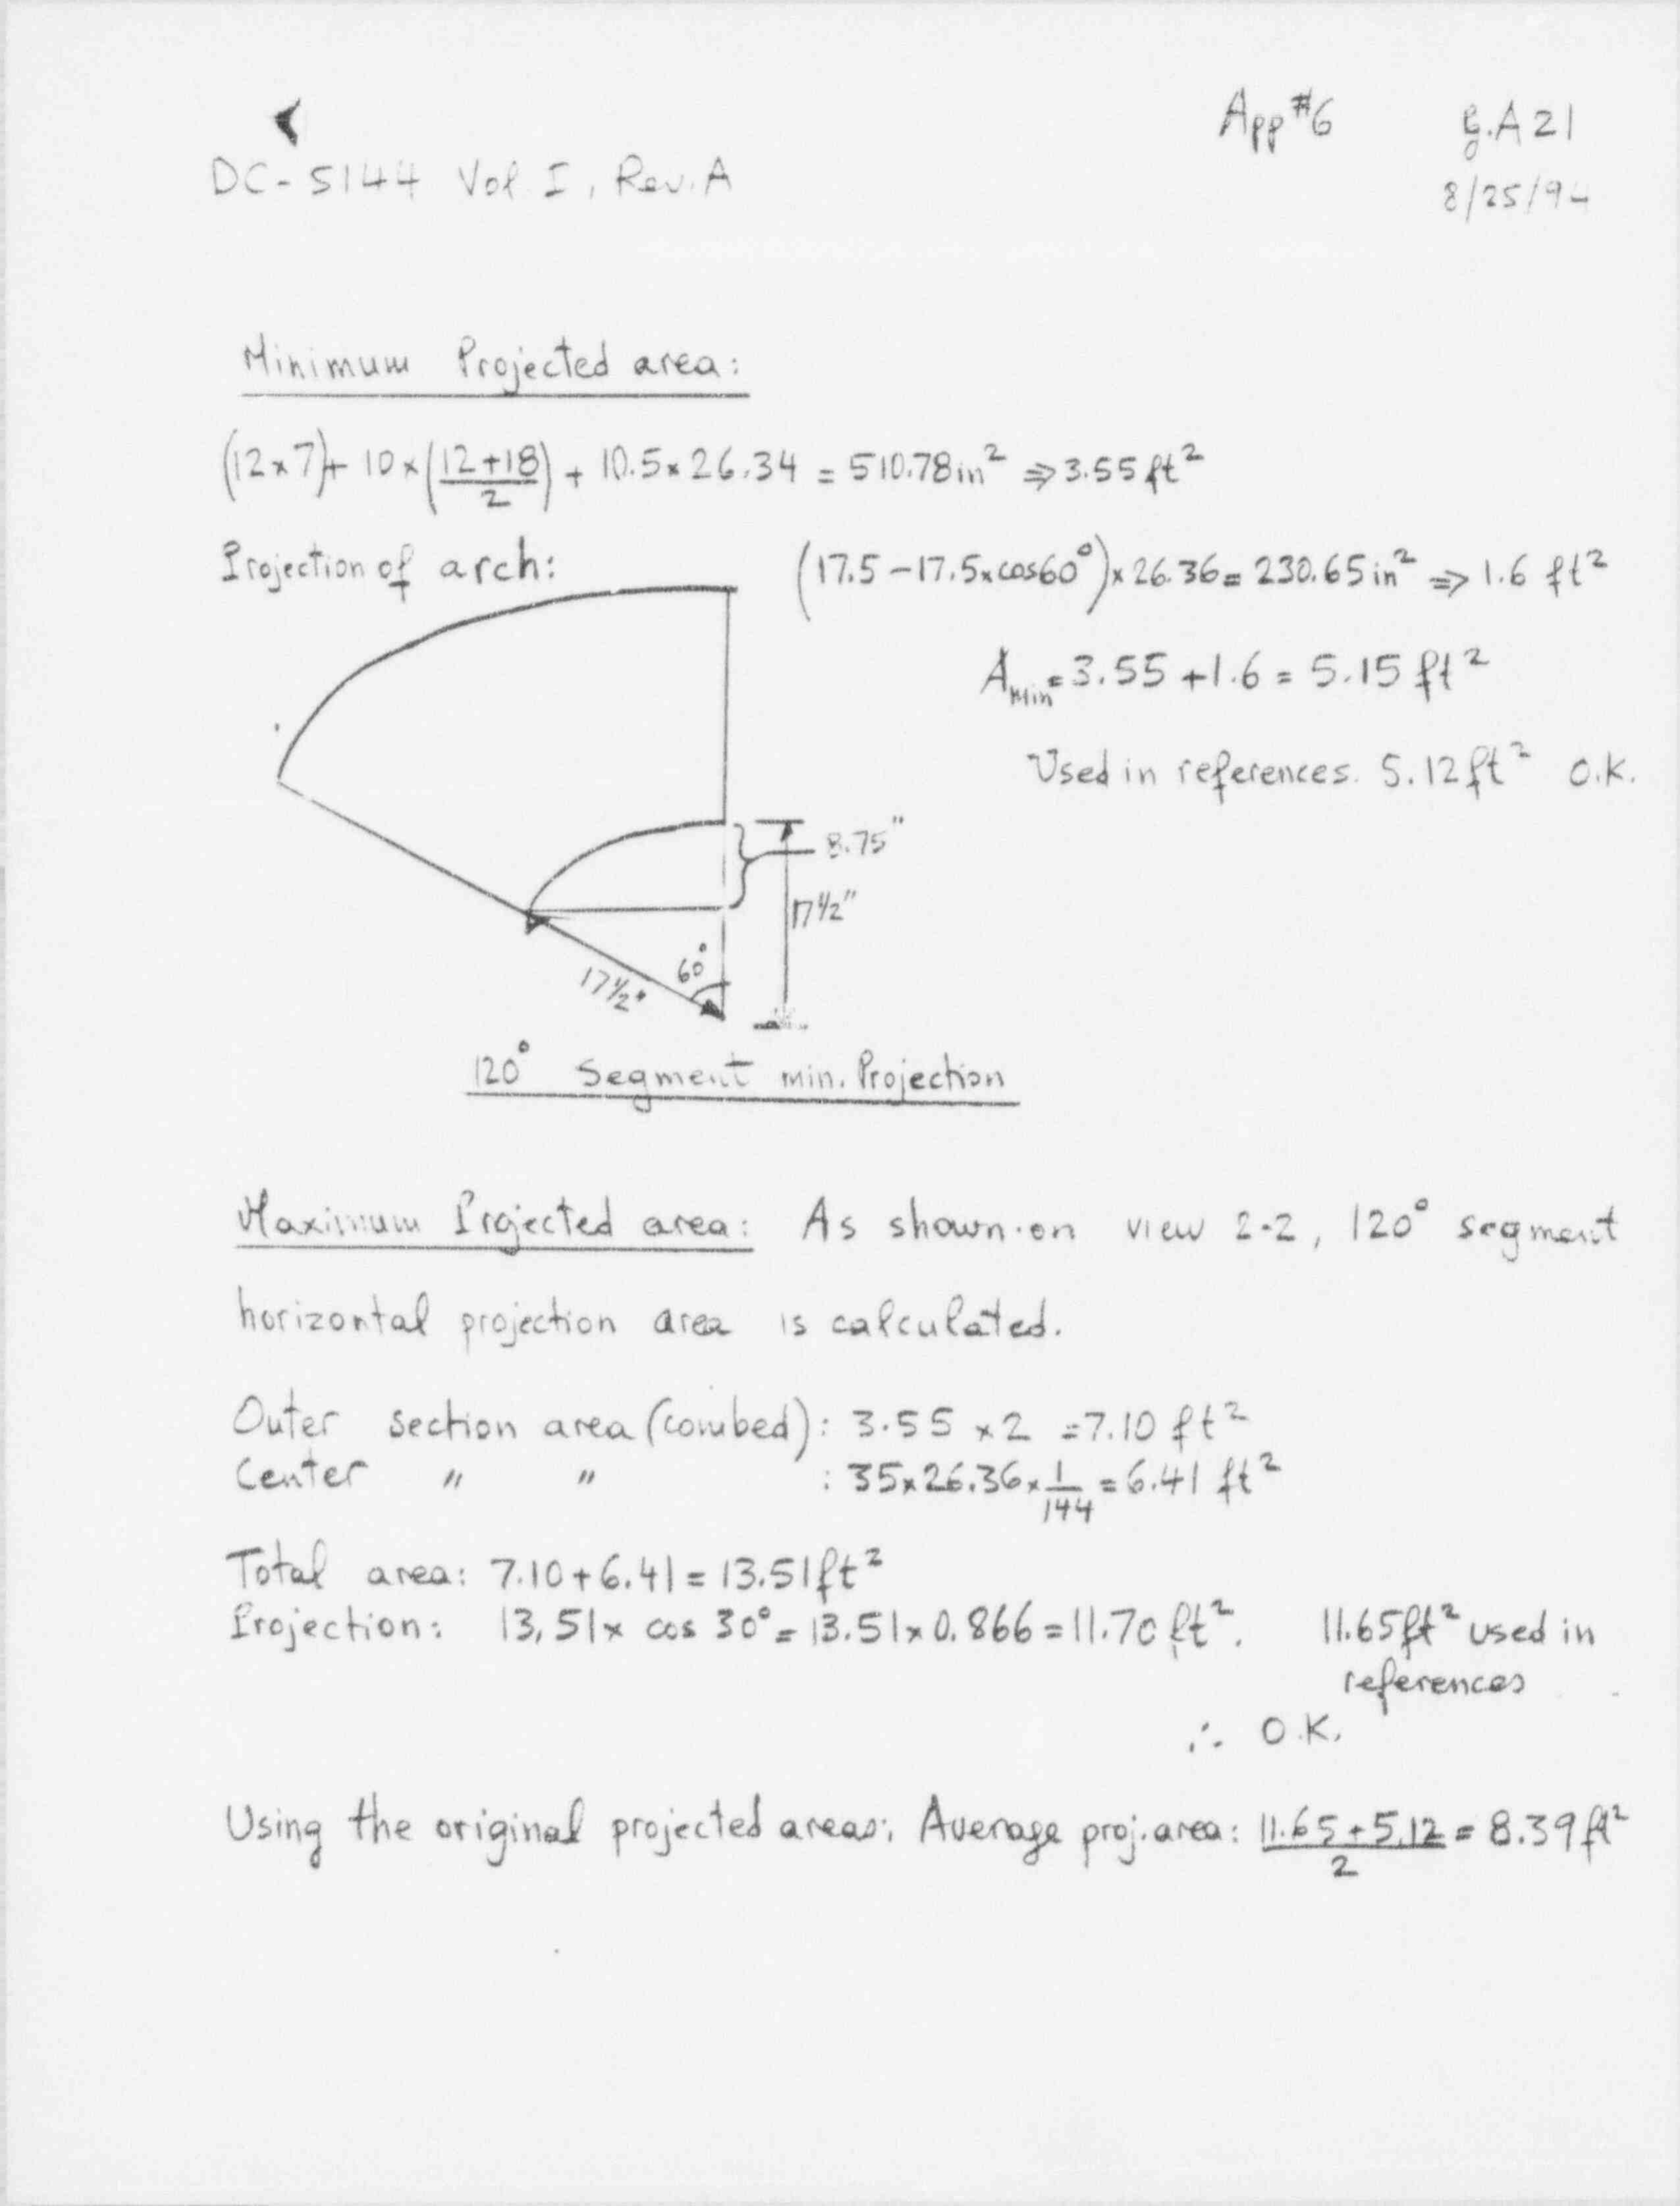 App #6 g.A21
DC-5144 Vol I, Rev. A 8/25/94
Minimum Projected area:
(12x7)+ 10x(12+18/2) + 10.5x26.34 = 510.78 in² ⇒ 3.55 ft²
Projection of arch: (17.5-17.5xcos60°)x26.36=230.65 in² ⇒ 1.6 ft²
Amin=3.55+1.6=5.15 ft²
Used in references. 5.12 ft² O.K.
8.75"
17 1/2"
60°
17 1/2"
120° Segment min. Projection
Maximum Projected area: As shown on view 2-2, 120° segment
horizontal projection area is calculated.
Outer section area (combed): 3.55 x2 =7.10 ft²
Center " " : 35x26.36x 1/144 = 6.41 ft²
Total area: 7.10+6.41=13.51 ft²
Projection: 13.51x cos 30°=13.51x0.866=11.70 ft². 11.65 ft² used in
references
∴ O.K.
Using the original projected areas; Average proj. area: 11.65+5.12/2 = 8.39 ft²